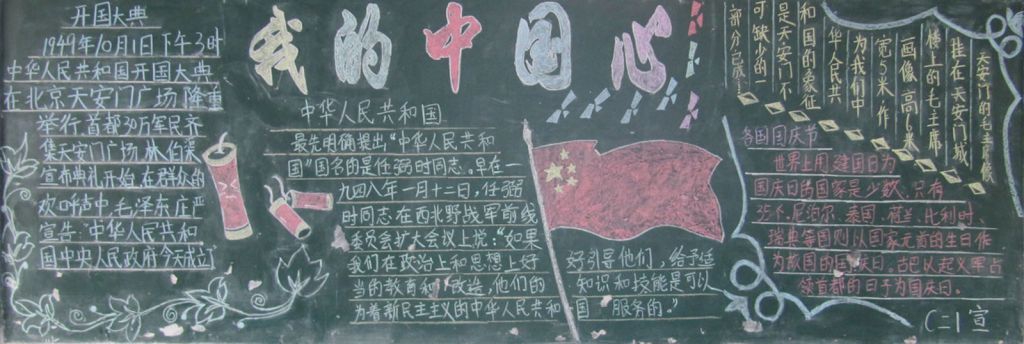 我的中国心
开国大典
1949年10月1日下午3时
中华人民共和国开国大典
在北京天安门广场隆重
举行首都30万军民齐
集天安门广场.林伯渠
宣布典礼开始.在群众的
欢呼声中,毛泽东庄严
宣告:"中华人民共和
国中央人民政府今天成立
中华人民共和国
最先明确提出"中华人民共和
国"国名的是任弼时同志。早在一
九四八年一月十二日,任弼
时同志在西北野战军前线
委员会扩大会议上说:"如果
我们在政治上和思想上好
当的教育和 改造,他们的
为着新民主主义的中华人民共和
好引导他们,给予适
知识和技能是可以
国 服务的。"
天安门的毛主席像
挂在天安门城
楼上的毛主席
画像高
宽 米.作
为我们中
华人民共
和国的象征
是天安门不
可缺少的
部分已成
各国国庆节
世界上用建国日为
国庆日的国家是少数,只有
35个.尼泊尔、泰国、荷兰、比利时、
瑞典等国则以国家元首的生日作
为故国的国庆日。古巴以起义军占
领首都的日子为国庆日。
C二1宣